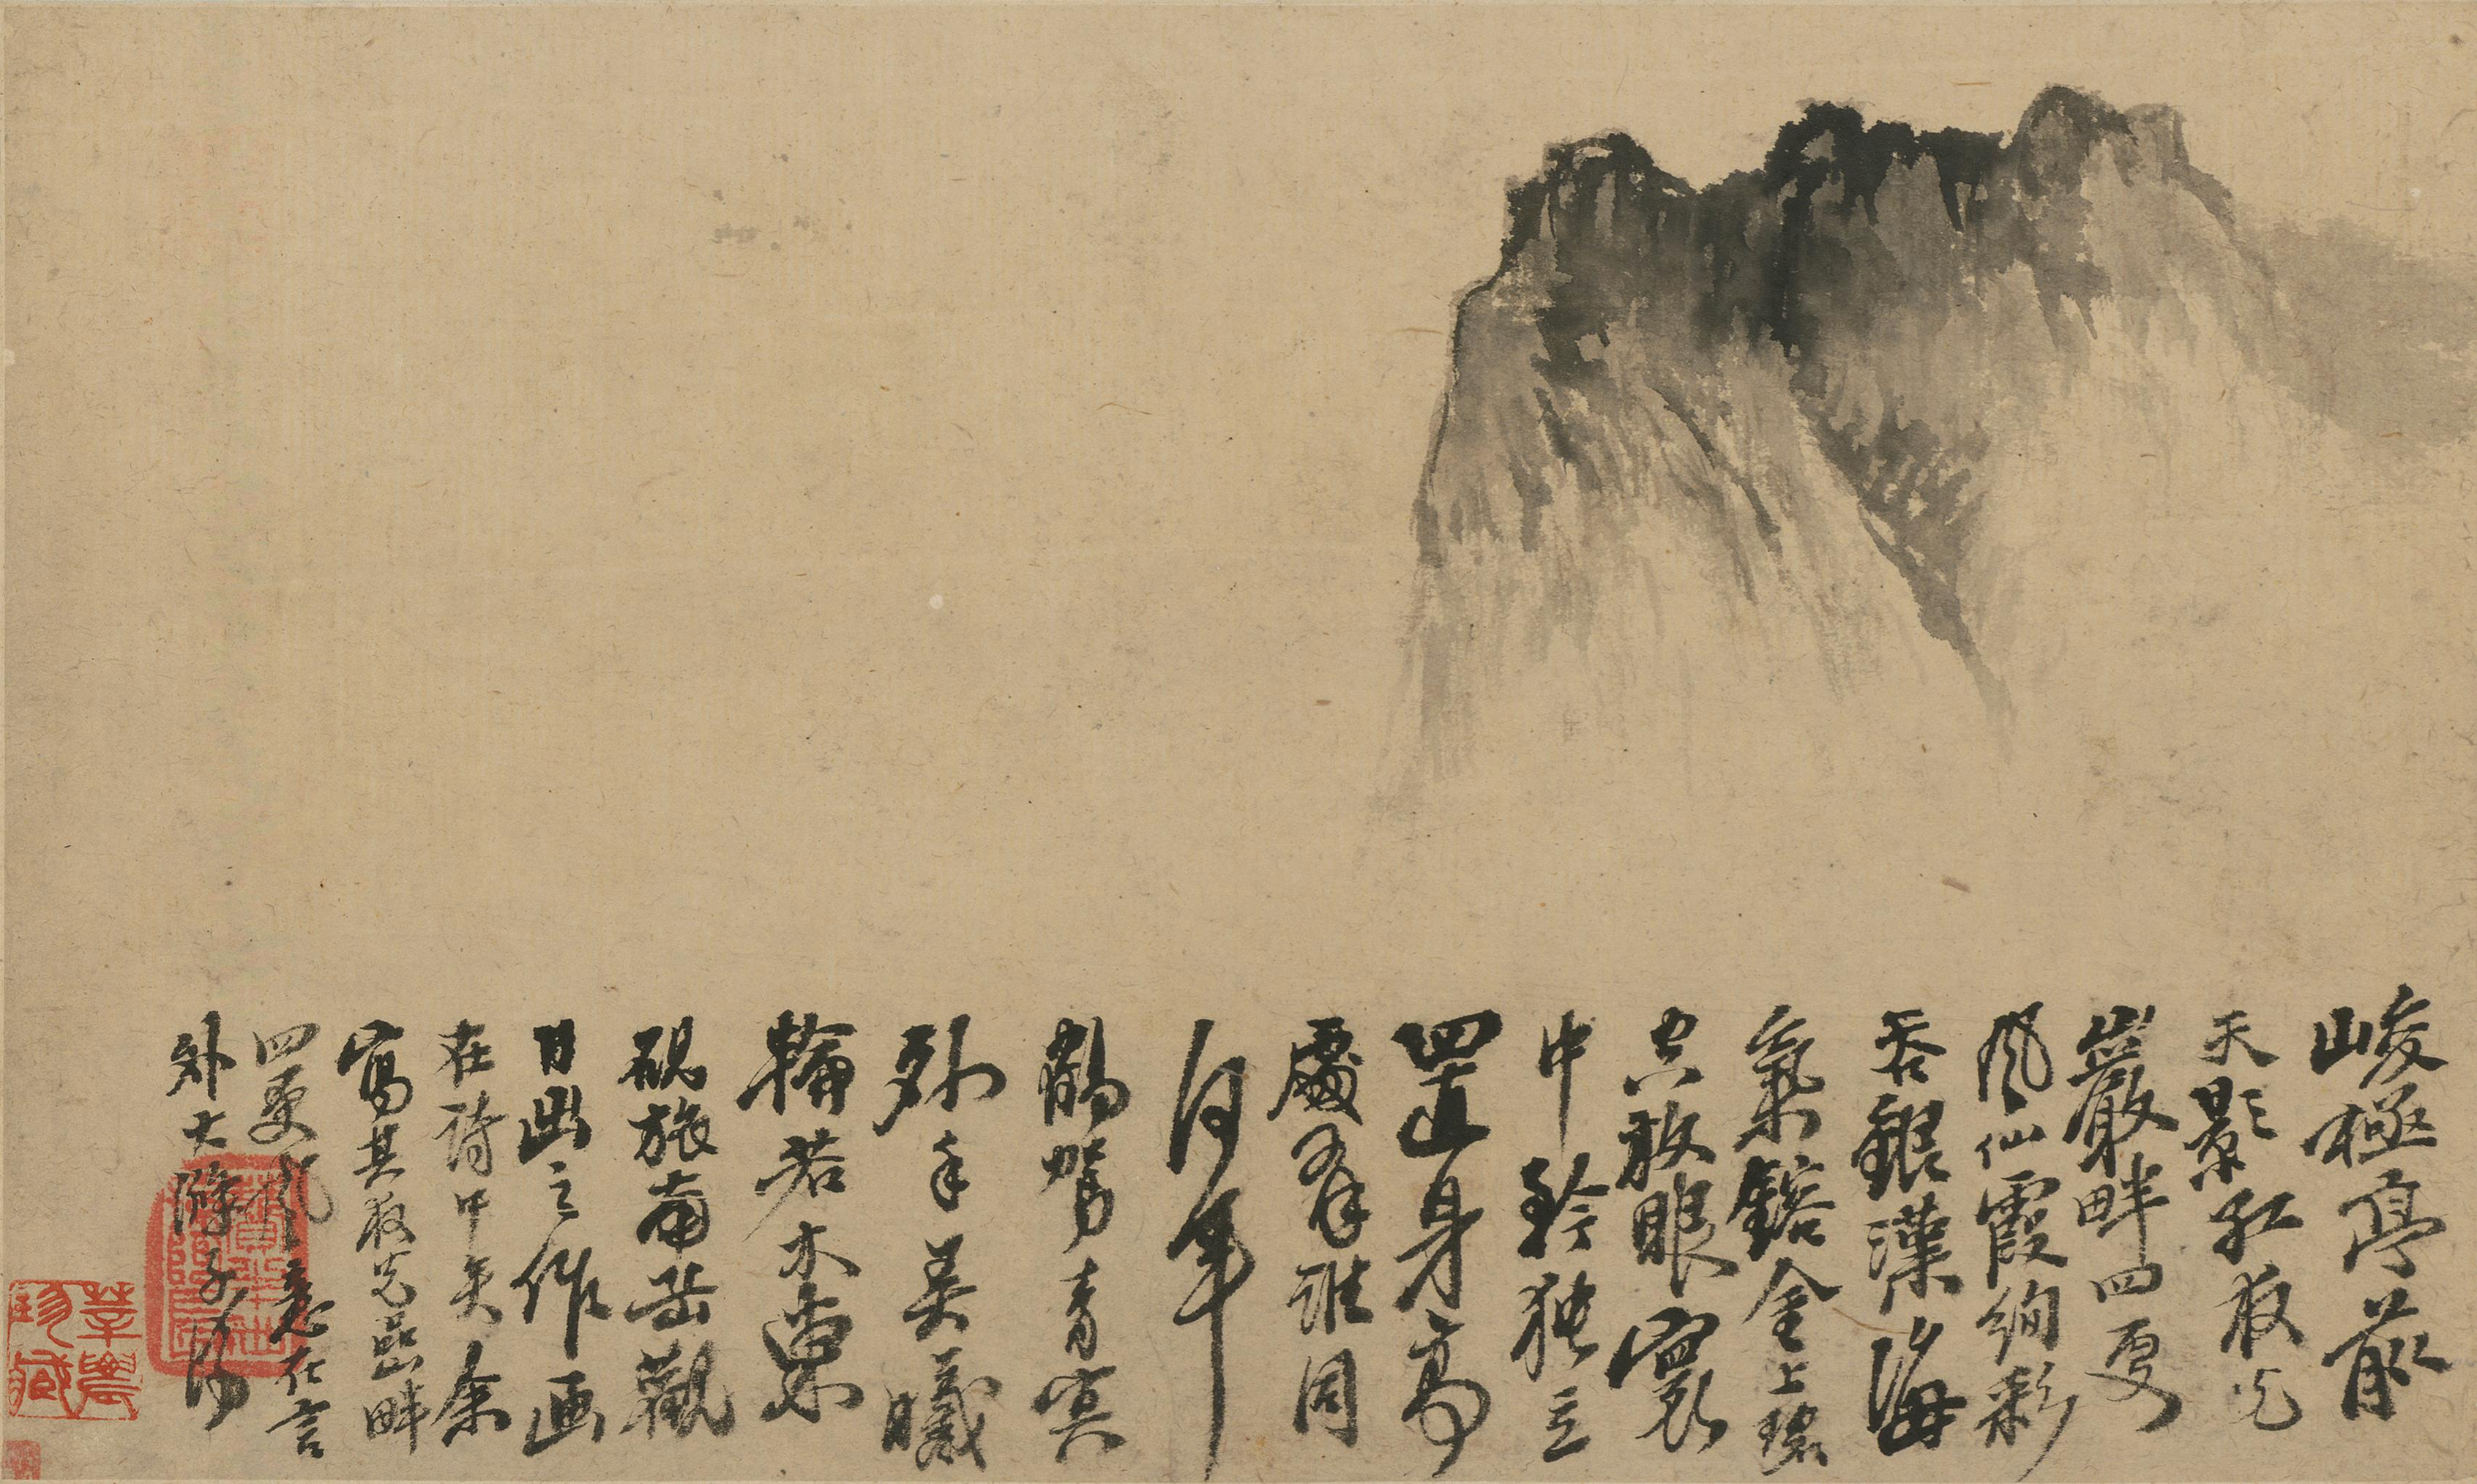 峻極亭前
天影紅夜光
巖畔四更
風仙霞絢彩
吞銀漢海
氣鎔金上碧
空放眼寰
中矜獨立
置身高
處有誰同
何年
鶴駕青冥
外手弄曦
輪若木東
硯旅南岳觀
日出之作画
在詩中矣余
寫其夜光嵒畔
四更風意在言
外大滌子
莘農
珍藏